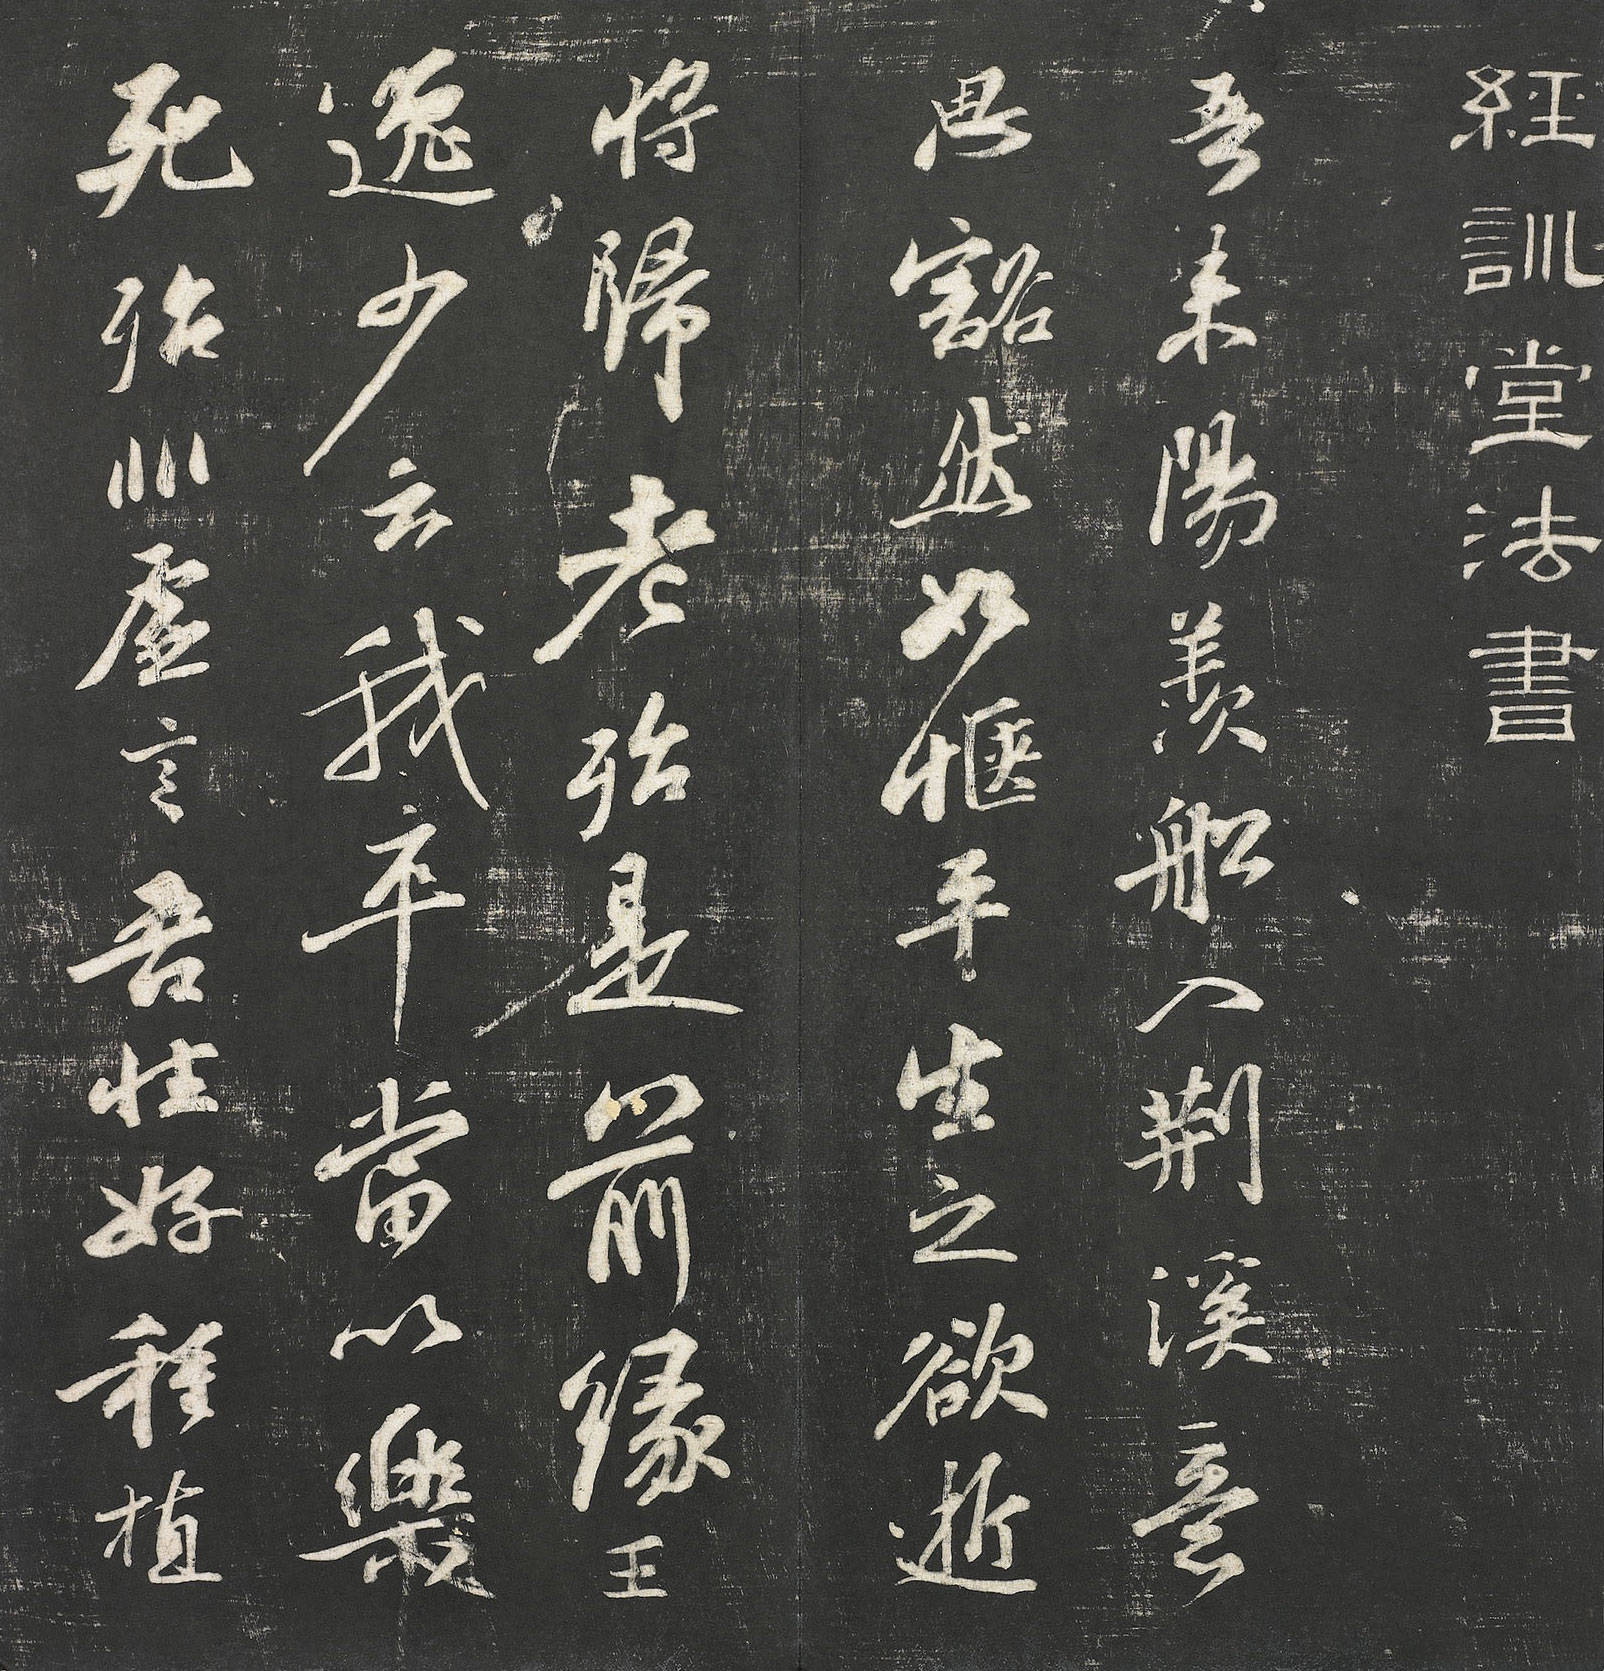 經訓堂法書
吾来陽羨船入荆溪意
思豁然如惬平生之欲逝
将歸老殆是前縁王
逸少云我卒當以樂
死殆非虚言吾性好種植